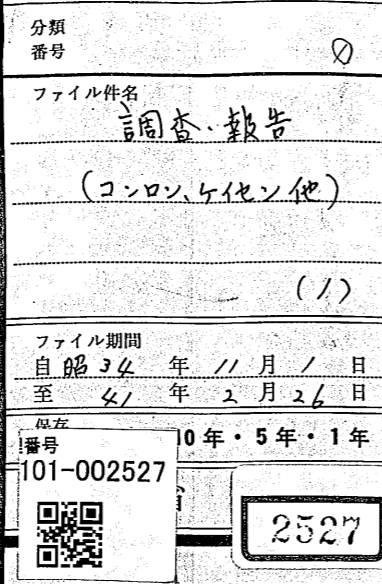 分類
番号
ファイル件名
調査・報告
(コンロン、ケイセン他)
(1)
ファイル期間
自 昭34 年 11 月 1 日
至 41 年 2 月 26 日
保存
10年・5年・1年
番号
101-002527
2527